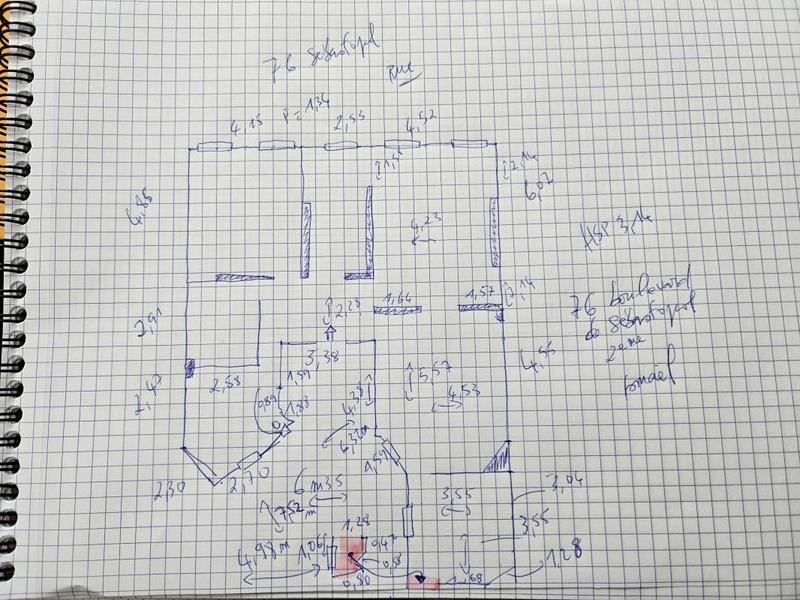 76 Sébastopol
Rue
4,15
F=1,34
2,53
4,52
2,14
6,07
4,85
4,23
HSP 3,14
2,91
2,23
1,64
1,57
2,14
76 boulevard
de Sébastopol
2eme
3,38
4,55
2,58
1,59
5,57
0,89
1,88
4,53
2,30
2,70
6m35
1,59
3,55
3,04
7,52 m
1,28
3,55
4,98m
1,06
0,47
0,80
1,68
1,28